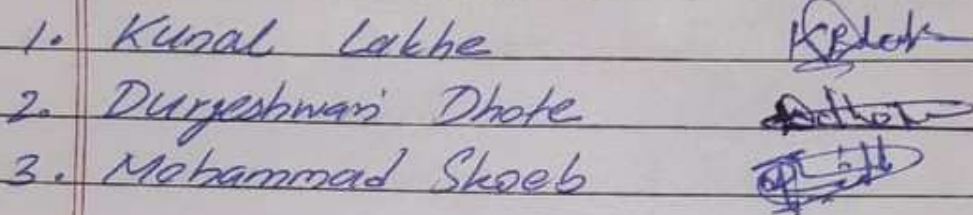 1. Kunal Lakhe
2. Durgeshwari Dhote
3. Mohammad Skoeb